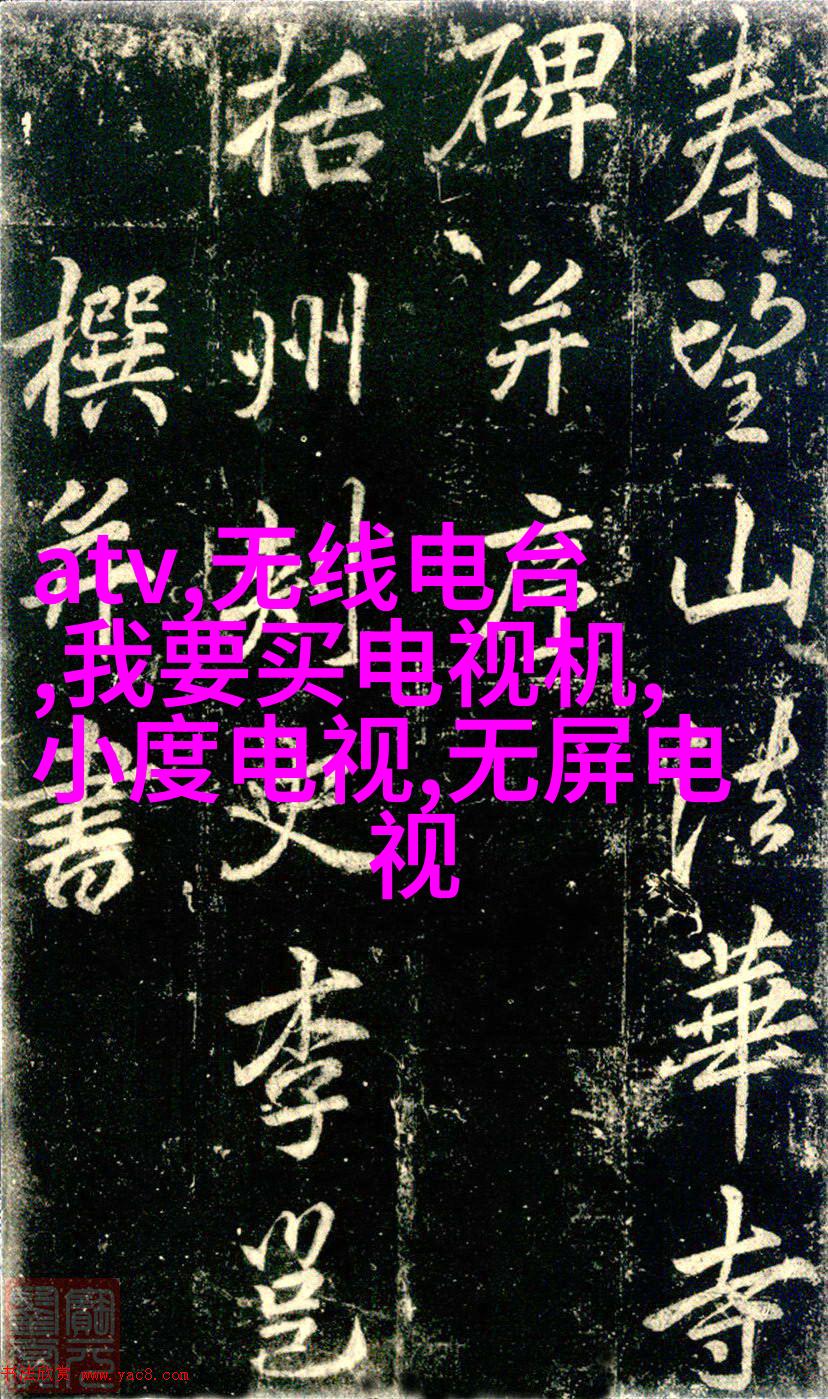 秦望山法華寺
碑并序
括州刺史李邕
撰并書
atv,无线电台
,我要买电视机,
小度电视,无屏电
视
书法欣赏 www.yac8.com